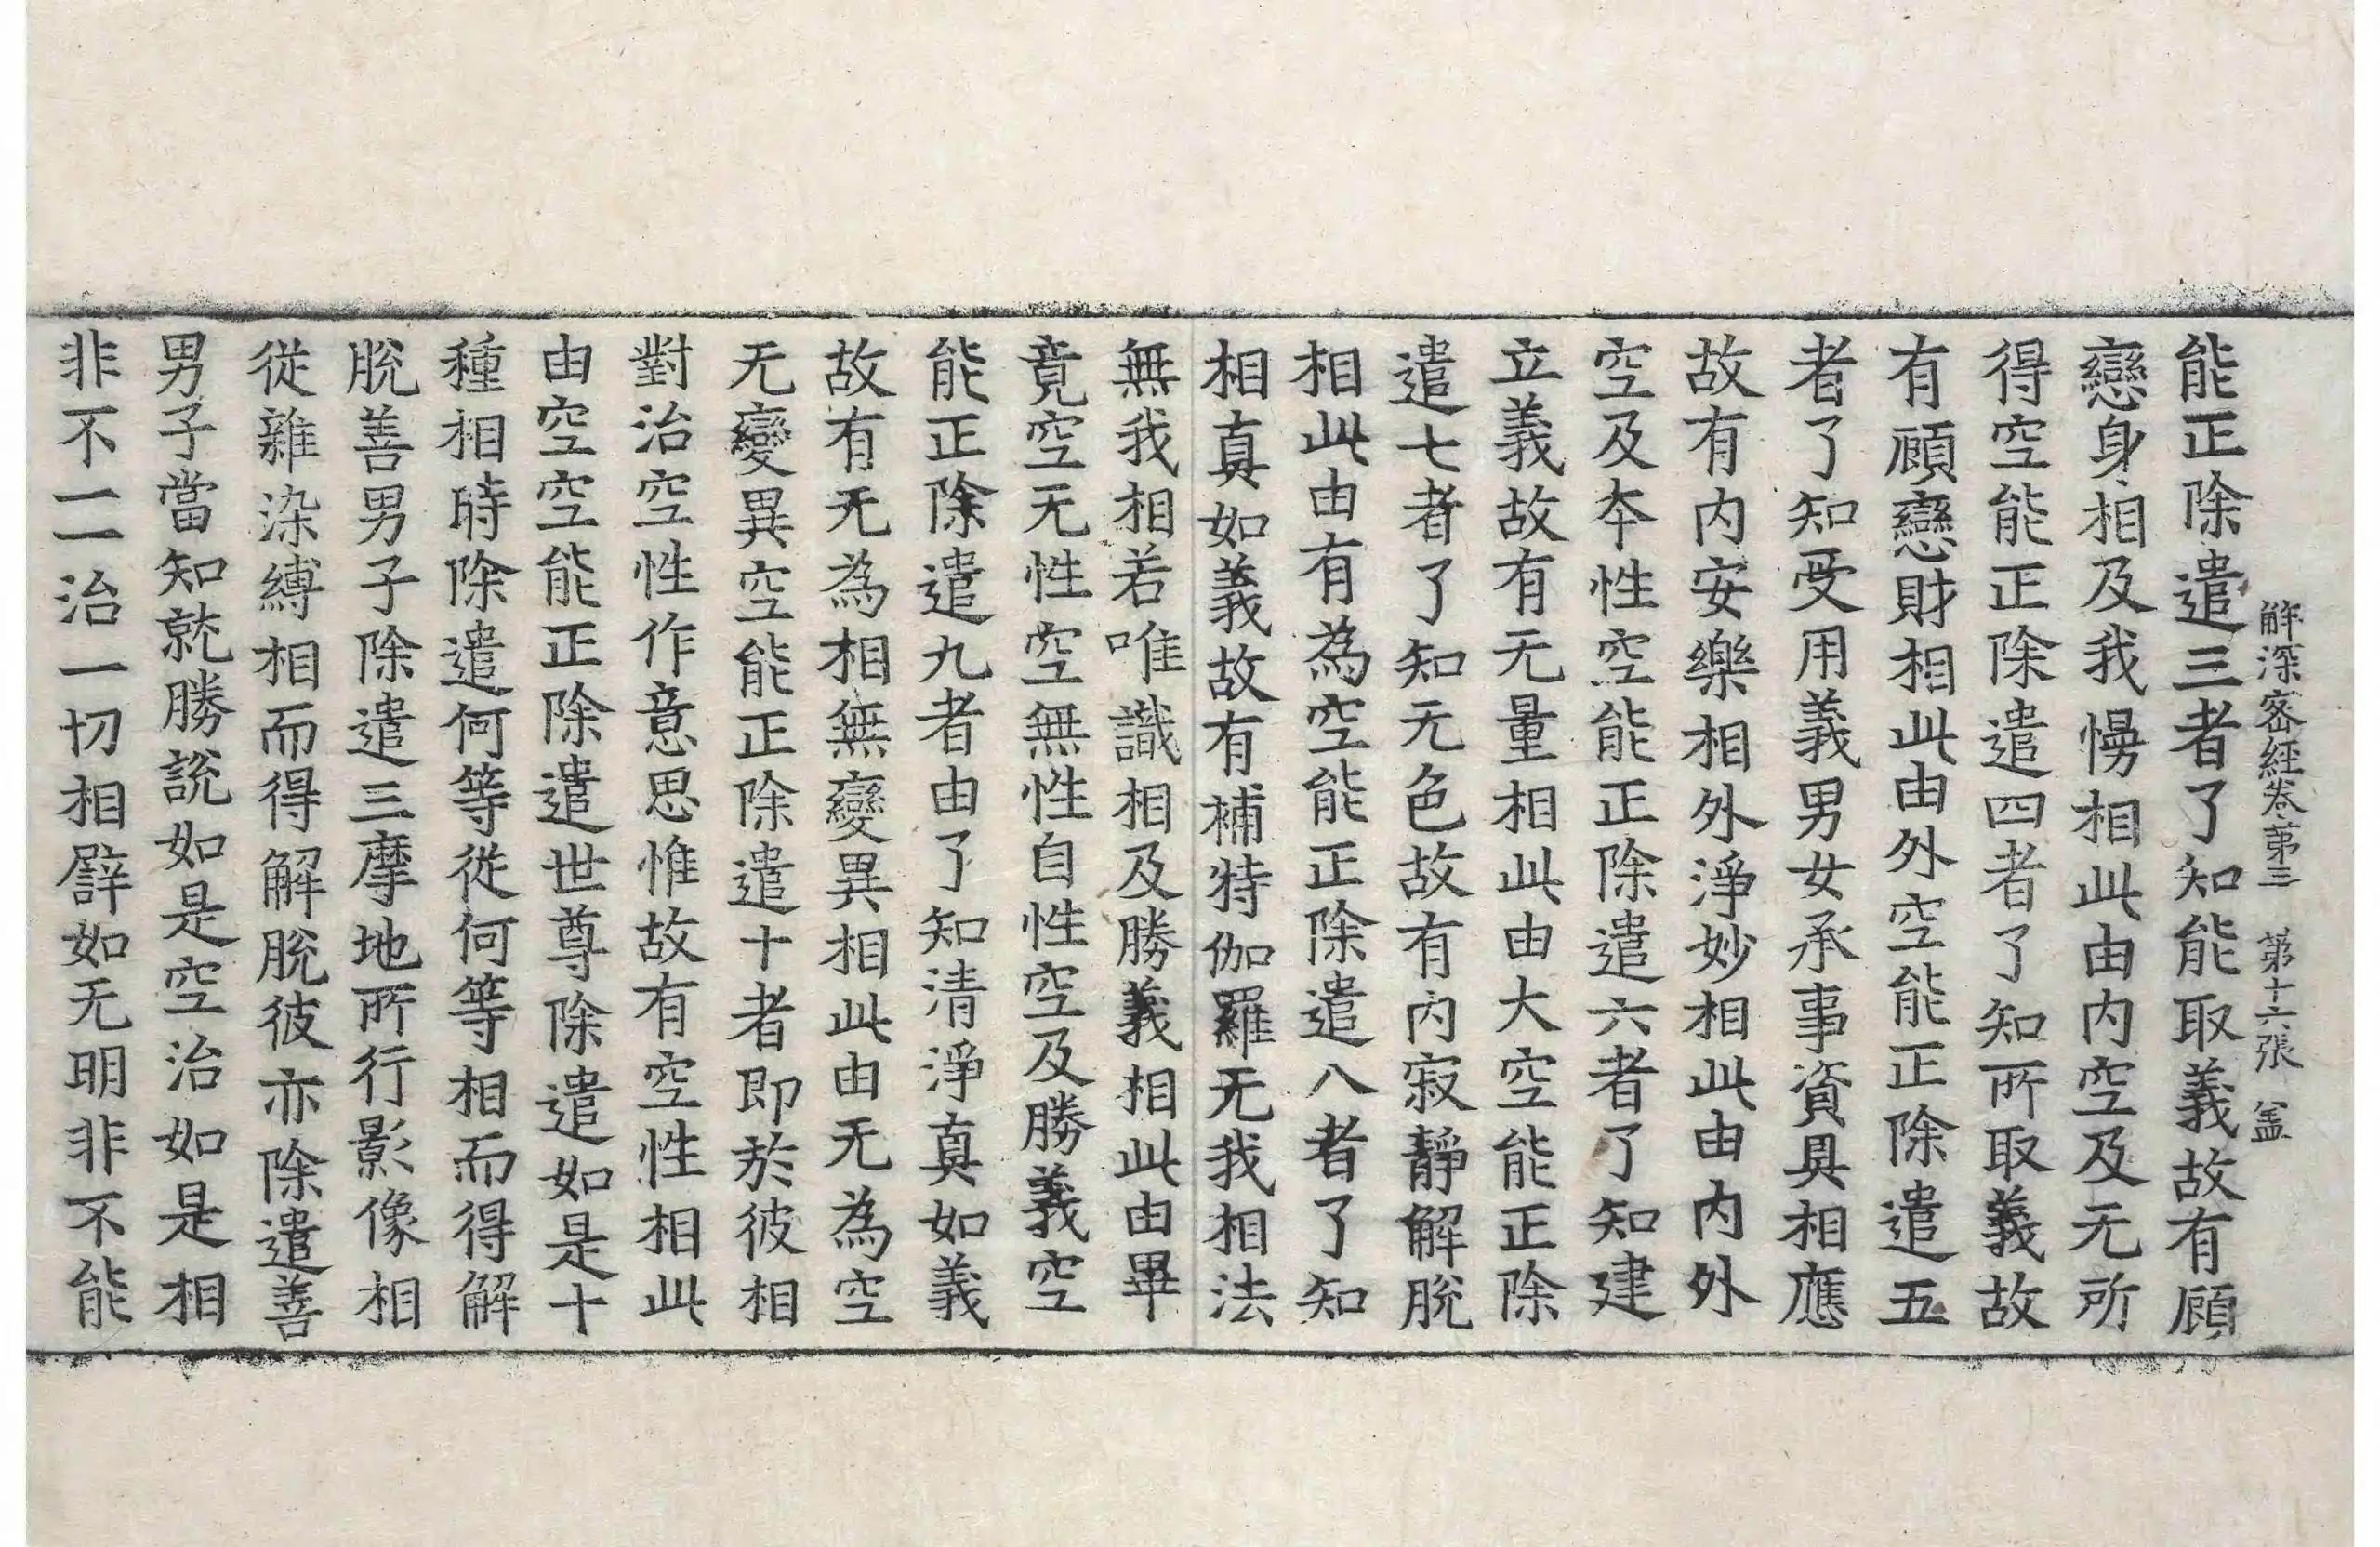 解深密經卷第三 第十六張 盖
能正除遣三者了知能取義故有顧
戀身相及我慢相此由內空及无所
得空能正除遣四者了知所取義故
有顧戀財相此由外空能正除遣五
者了知受用義男女承事資具相應
故有內安樂相外淨妙相此由內外
空及本性空能正除遣六者了知建
立義故有无量相此由大空能正除
遣七者了知无色故有內寂靜解脫
相此由有為空能正除遣八者了知
相真如義故有補特伽羅无我相法
無我相若唯識相及勝義相此由畢
竟空无性空無性自性空及勝義空
能正除遣九者由了知清淨真如義
故有无為相無變異相此由无為空
无變異空能正除遣十者即於彼相
對治空性作意思惟故有空性相此
由空空能正除遣世尊除遣如是十
種相時除遣何等從何等相而得解
脫善男子除遣三摩地所行影像相
從雜染縛相而得解脫彼亦除遣善
男子當知就勝說如是空治如是相
非不一一治一切相譬如无明非不能